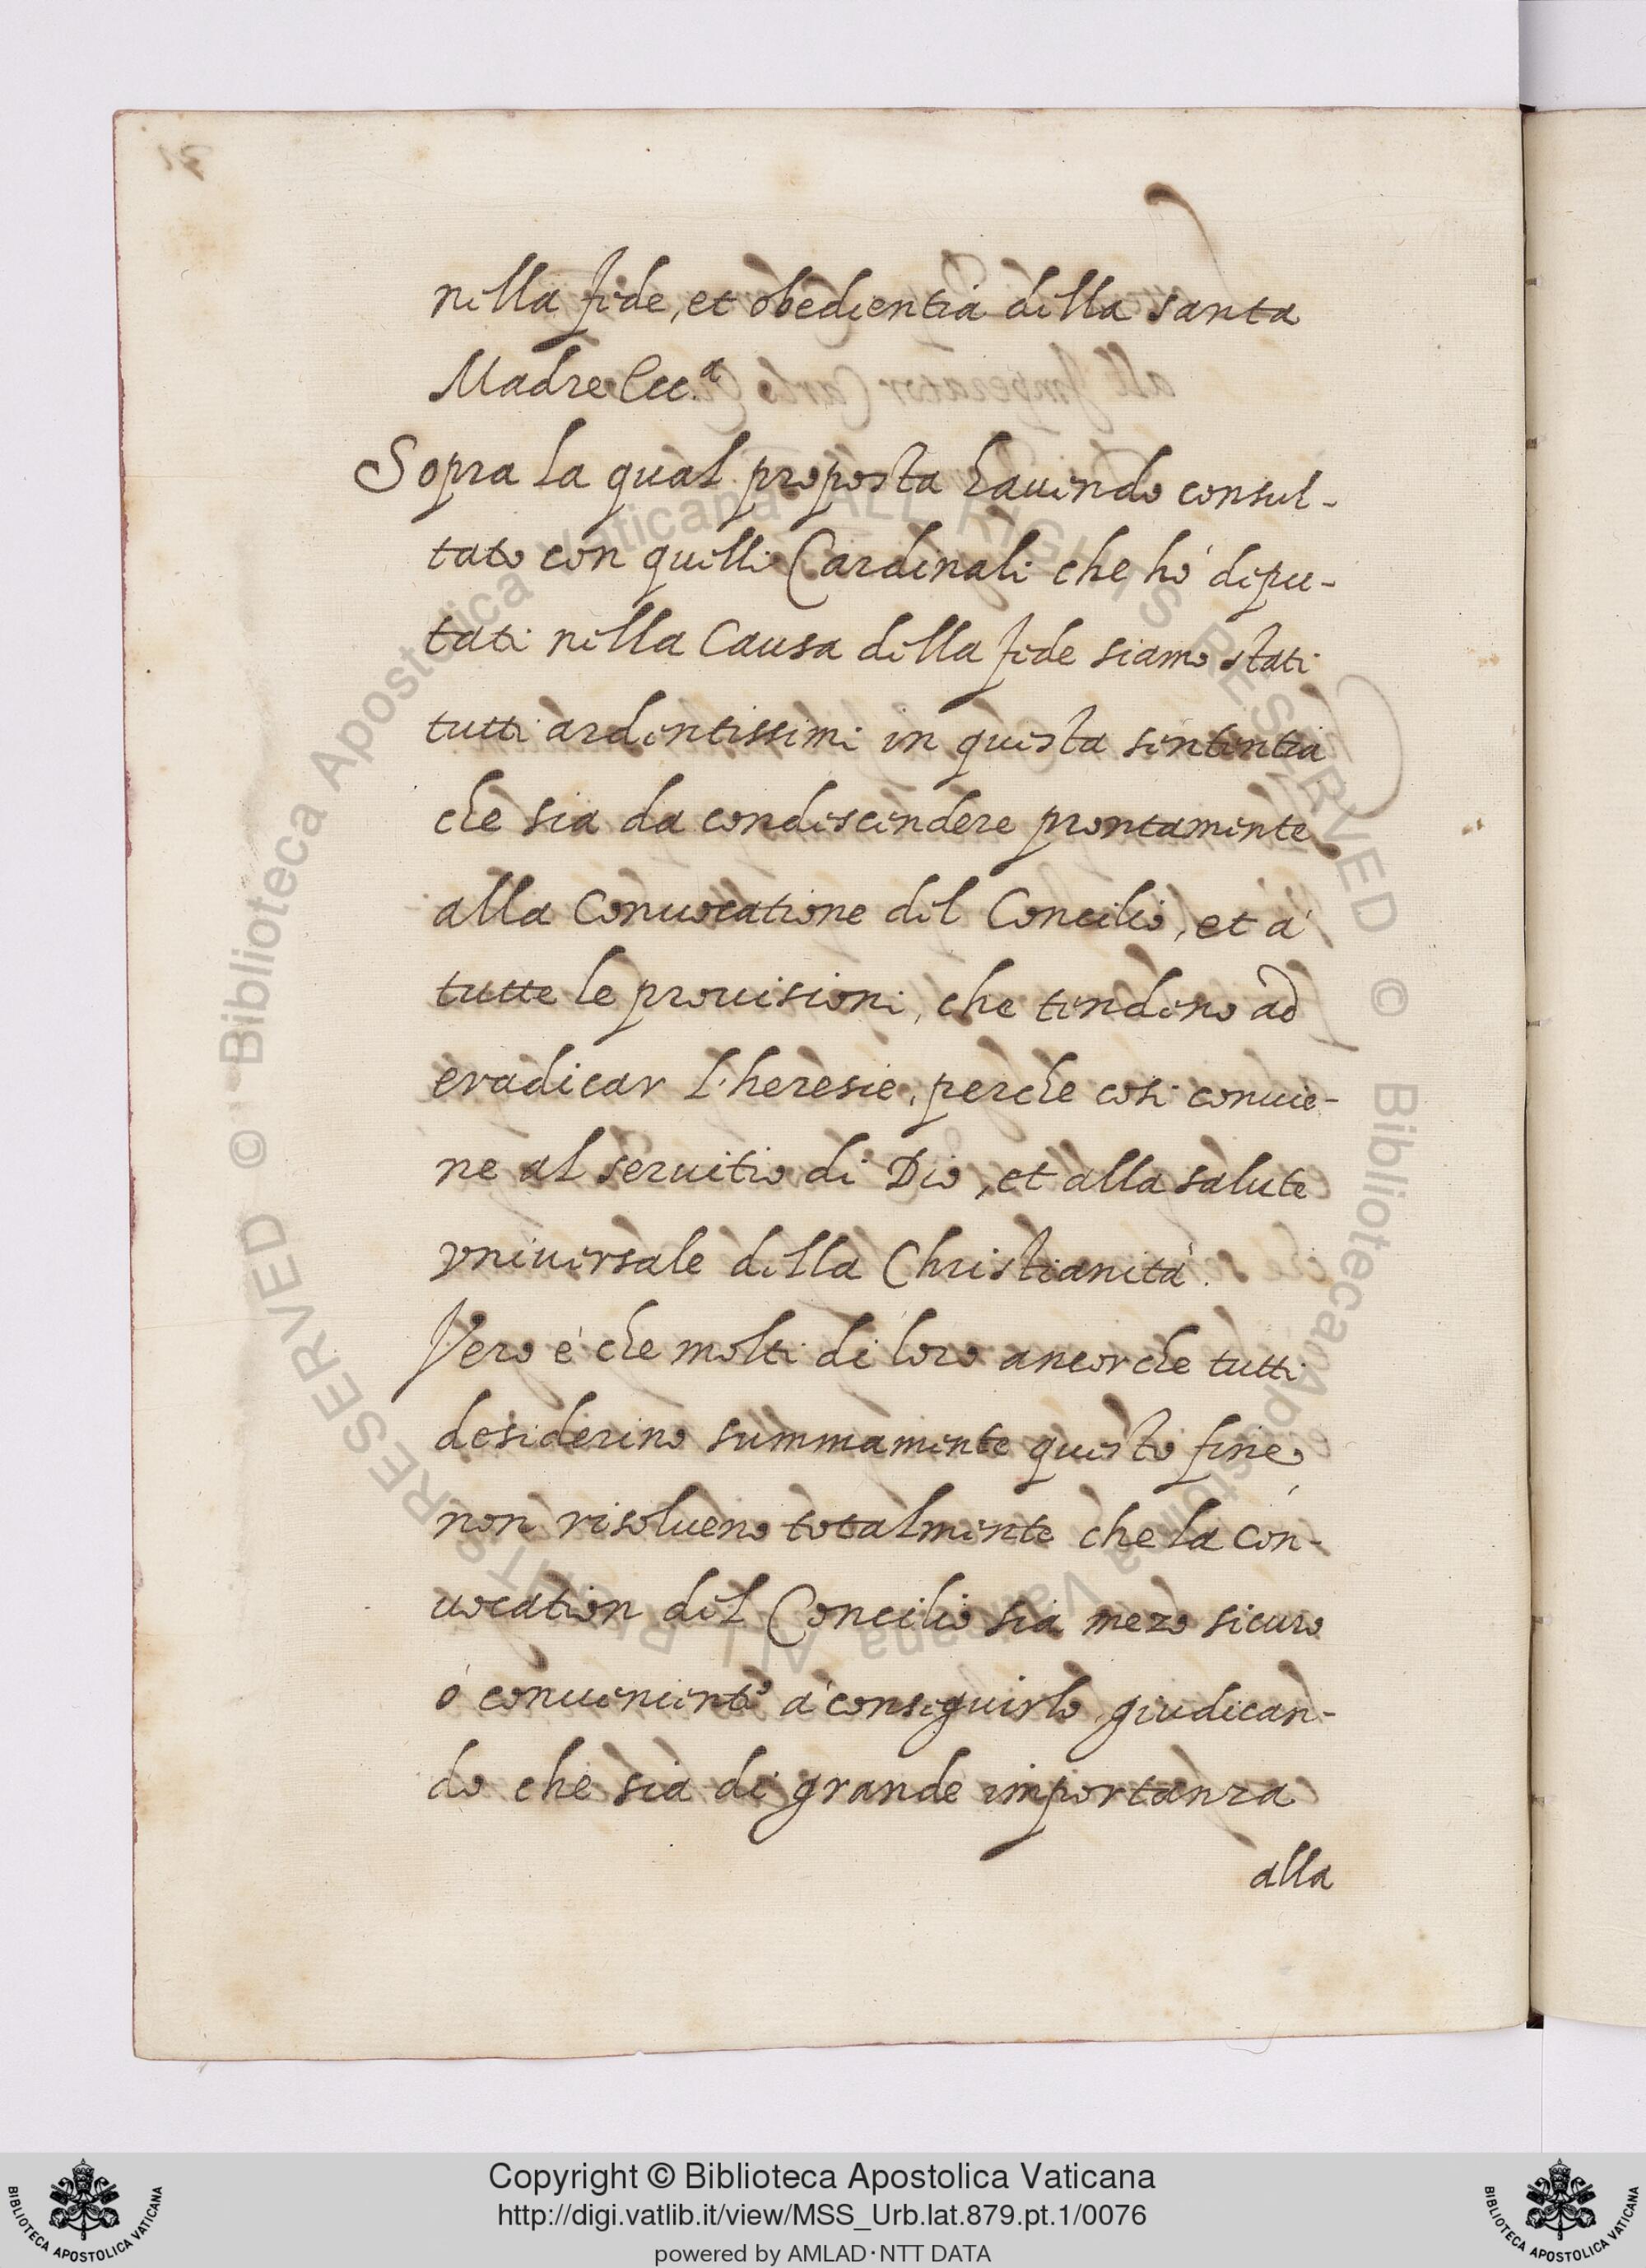 nella fede, et obedientia della santa
Madre Ecc.ª
Sopra la qual proposta havendo consul-
tato con quelli Cardinali che hó depu-
tati nella Causa della fede siamo stati
tutti ardentissimi in questa sententia
che sia da condescendere prontamente
alla Conuocatione del Concilio, et á
tutte le prouisioni, che tendeno ad
eradicar l'heresie, perche cosi conuie-
ne al seruitio di Dio, et alla salute
vniuersale della Christianitá.
Vero é che molti di loro ancorche tutti
desiderino summamente questo fine,
non risolueno totalmente che la con-
uocation del Concilio sia mezo sicuro
ó conueniente á conseguirlo, giudican-
do che sia di grande importanza
alla
Copyright © Biblioteca Apostolica Vaticana
http://digi.vatlib.it/view/MSS_Urb.lat.879.pt.1/0076
powered by AMLAD·NTT DATA
BIBLIOTECA APOSTOLICA VATICANA
BIBLIOTECA APOSTOLICA VATICANA
© Biblioteca Apostolica Vaticana ALL RIGHTS RESERVED © Biblioteca Apostolica Vaticana ALL RIGHTS RESERVED